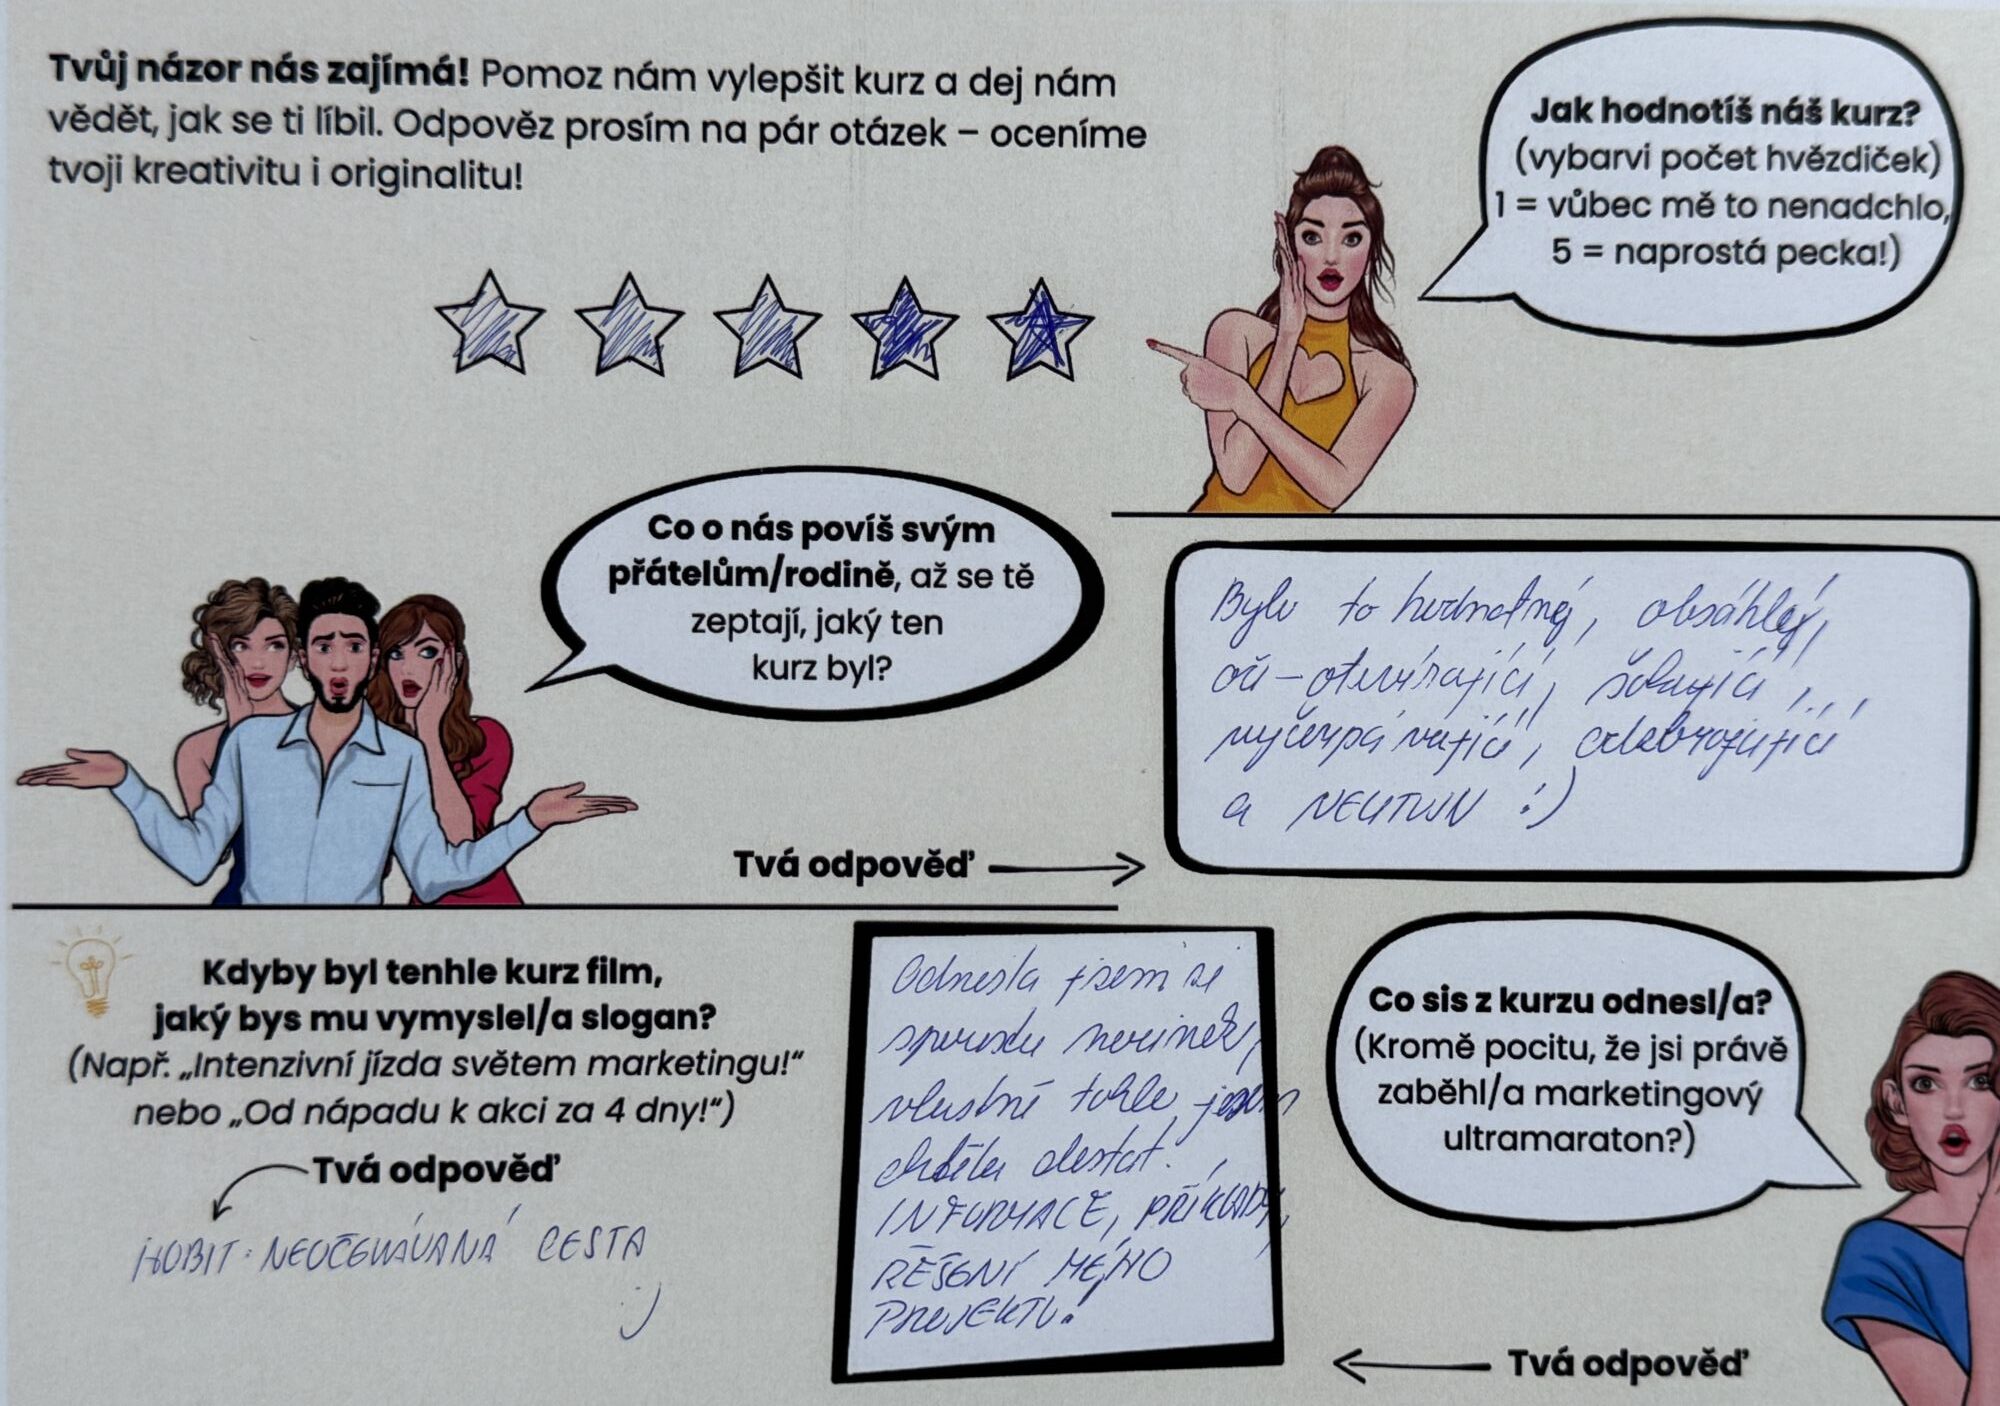 Tvůj názor nás zajímá! Pomoz nám vylepšit kurz a dej nám
vědět, jak se ti líbil. Odpověz prosím na pár otázek – oceníme
tvoji kreativitu i originalitu!
Jak hodnotíš náš kurz?
(vybarvi počet hvězdiček)
1 = vůbec mě to nenadchlo,
5 = naprostá pecka!)
Co o nás povíš svým
přátelům/rodině, až se tě
zeptají, jaký ten
kurz byl?
Tvá odpověď
Bylo to hodnotné, obsáhlé,
oči-otevírající, šokující,
vyčerpávající,
a :)
Kdyby byl tenhle kurz film,
jaký bys mu vymyslel/a slogan?
(Např. „Intenzivní jízda světem marketingu!“
nebo „Od nápadu k akci za 4 dny!“)
Tvá odpověď
HOBIT: NEOČEKÁVANÁ CESTA
:)
Co sis z kurzu odnesl/a?
(Kromě pocitu, že jsi právě
zaběhl/a marketingový
ultramaraton?)
Tvá odpověď
Odnesla jsem si
spoustu
vlastně tohle jsem
chtěla dostat.
INFORMACE, PŘÍKLADY,
ŘEŠENÍ MÉHO
PROJEKTU.